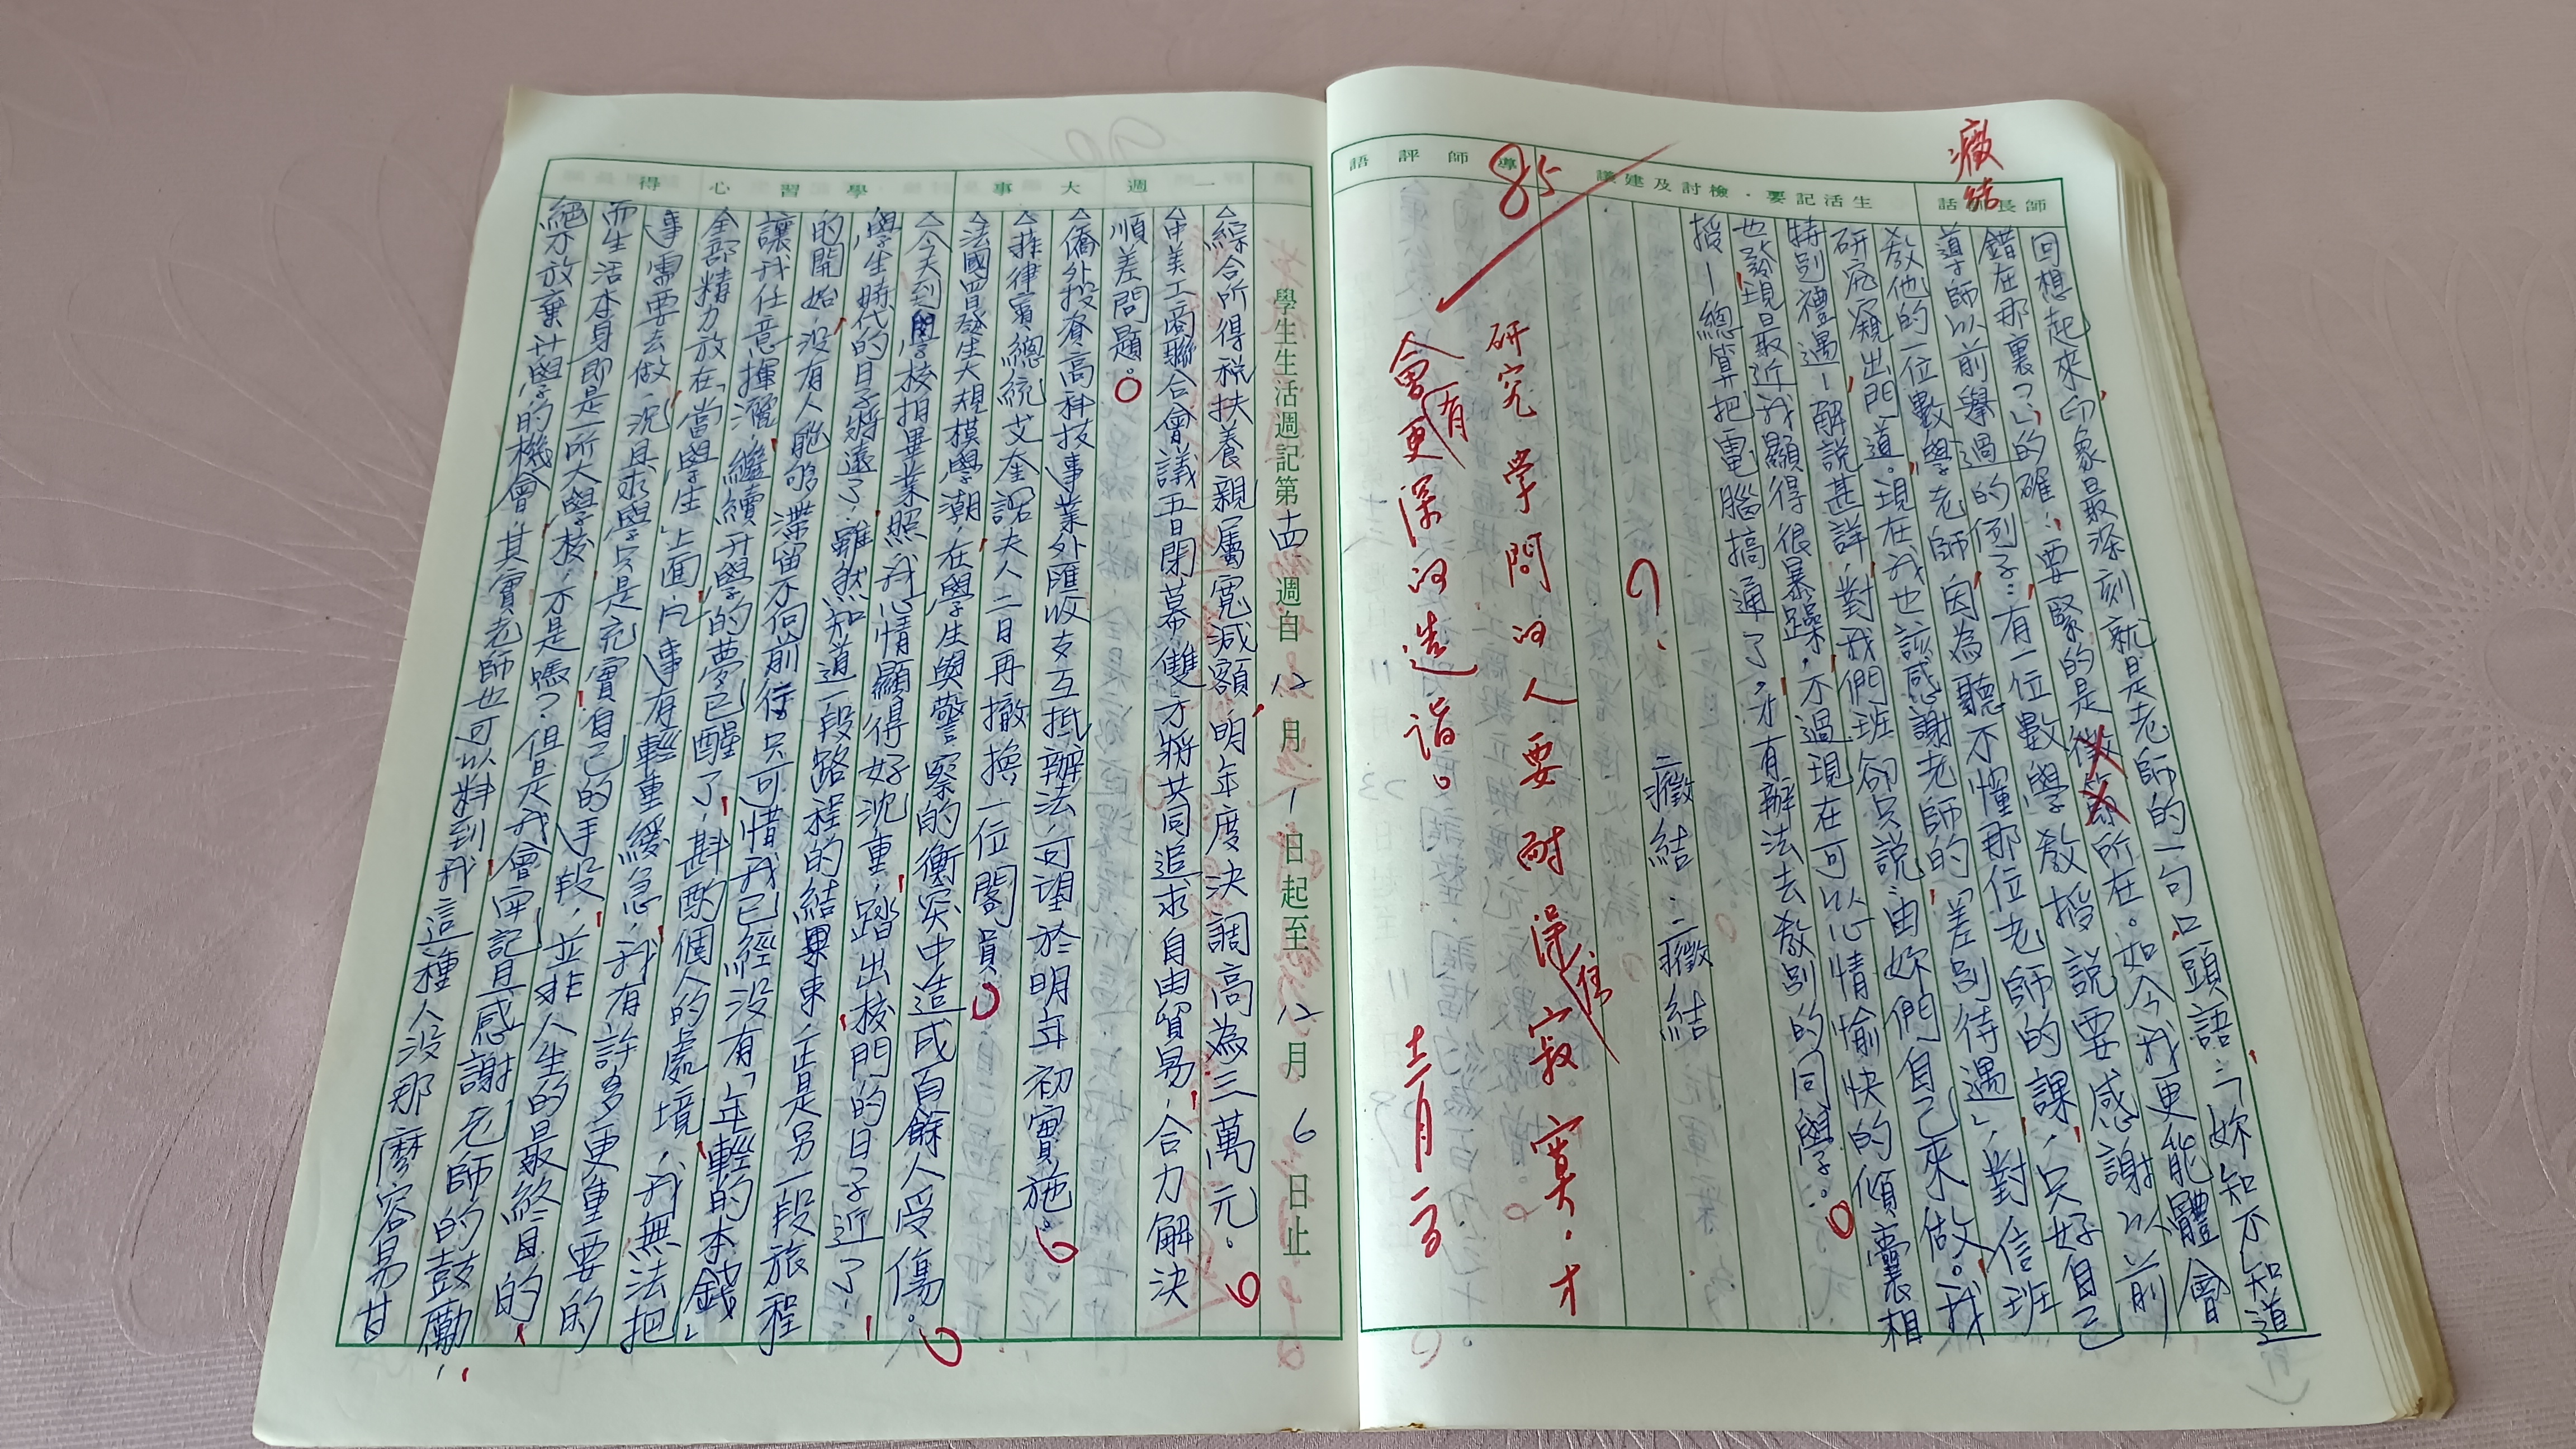 癥結
師長訓話
生活記要・檢討及建議
導師評語
回想起來,印象最深刻就是老師的一句口頭語:「妳知不知道
錯在那裏?」的確,要緊的是徵節所在。如今我更能體會
導師以前舉過的例子:有一位數學教授說要感謝以前
教他的一位數學老師,因為聽不懂那位老師的課,只好自己
研究,窺出門道。現在我也該感謝老師的「差別待遇」,對信班
特別禮遇-解說甚詳,對我們班卻只說:由妳們自己來做。我
也發現最近我顯得很暴躁,不過現在可以心情愉快的傾囊相
授-總算把電腦搞通了,才有辦法去教別的同學。
?
癥結:癥結
85
研究學問的人要耐得住寂寞,才
會有更深的造詣。
十二月一百
學生生活週記第十四週自12月1日起至12月6日止
一週大事
學習心得
△綜合所得稅扶養親屬寬減額,明年度決調高為三萬元。
△中美工商聯合會議五日閉幕,雙方將共同追求自由貿易,合力解決
順差問題。
△僑外投資高科技事業外匯收支互抵辦法,可望於明年初實施。
△菲律賓總統艾奎諾夫人二日再撤換一位閣員。
△法國四日發生大規模學潮,在學生與警察的衝突中造成百餘人受傷。
△今天到學校拍畢業照,我心情顯得好沈重,踏出校門的日子近了,
學生時代的日子將遠了,雖然知道一段路程的結束,正是另一段旅程
的開始,沒有人能夠滯留不向前行。只可惜我已經沒有「年輕的本錢」
讓我任意揮灑,繼續升學的夢已醒了,斟酌個人的處境,我無法把
全部精力放在「當學生」上面,凡事有輕重緩急,我有許多更重要的
事需要去做,況且求學只是充實自己的手段,並非人生的最終目的,
而生活本身即是一所大學校,不是嗎?但是我會牢記且感謝老師的鼓勵,
絕不放棄升學的機會,其實老師也可以料到我這種人沒那麼容易甘